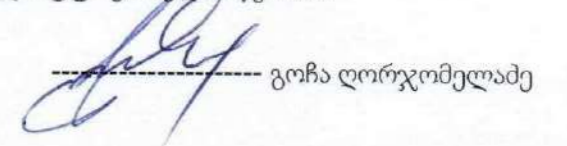 გოჩა ღორჯომელაძე